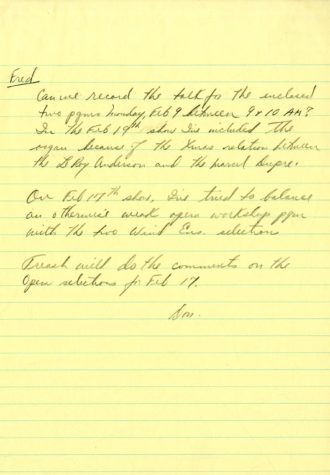 Fred
Can we record the talk for the enclosed
two pgms Monday, Feb 9 between 9 & 10 AM?
In the Feb 19th show I've included the
organ because of the Xmas relation between
the LeRoy Anderson and the Marcel Dupre.
On Feb 17th show, I've tried to balance
an otherwise weak opera workshop pgm
with the two Wind Ens. selections
Treash will do the comments on the
Opera selections for Feb 17.